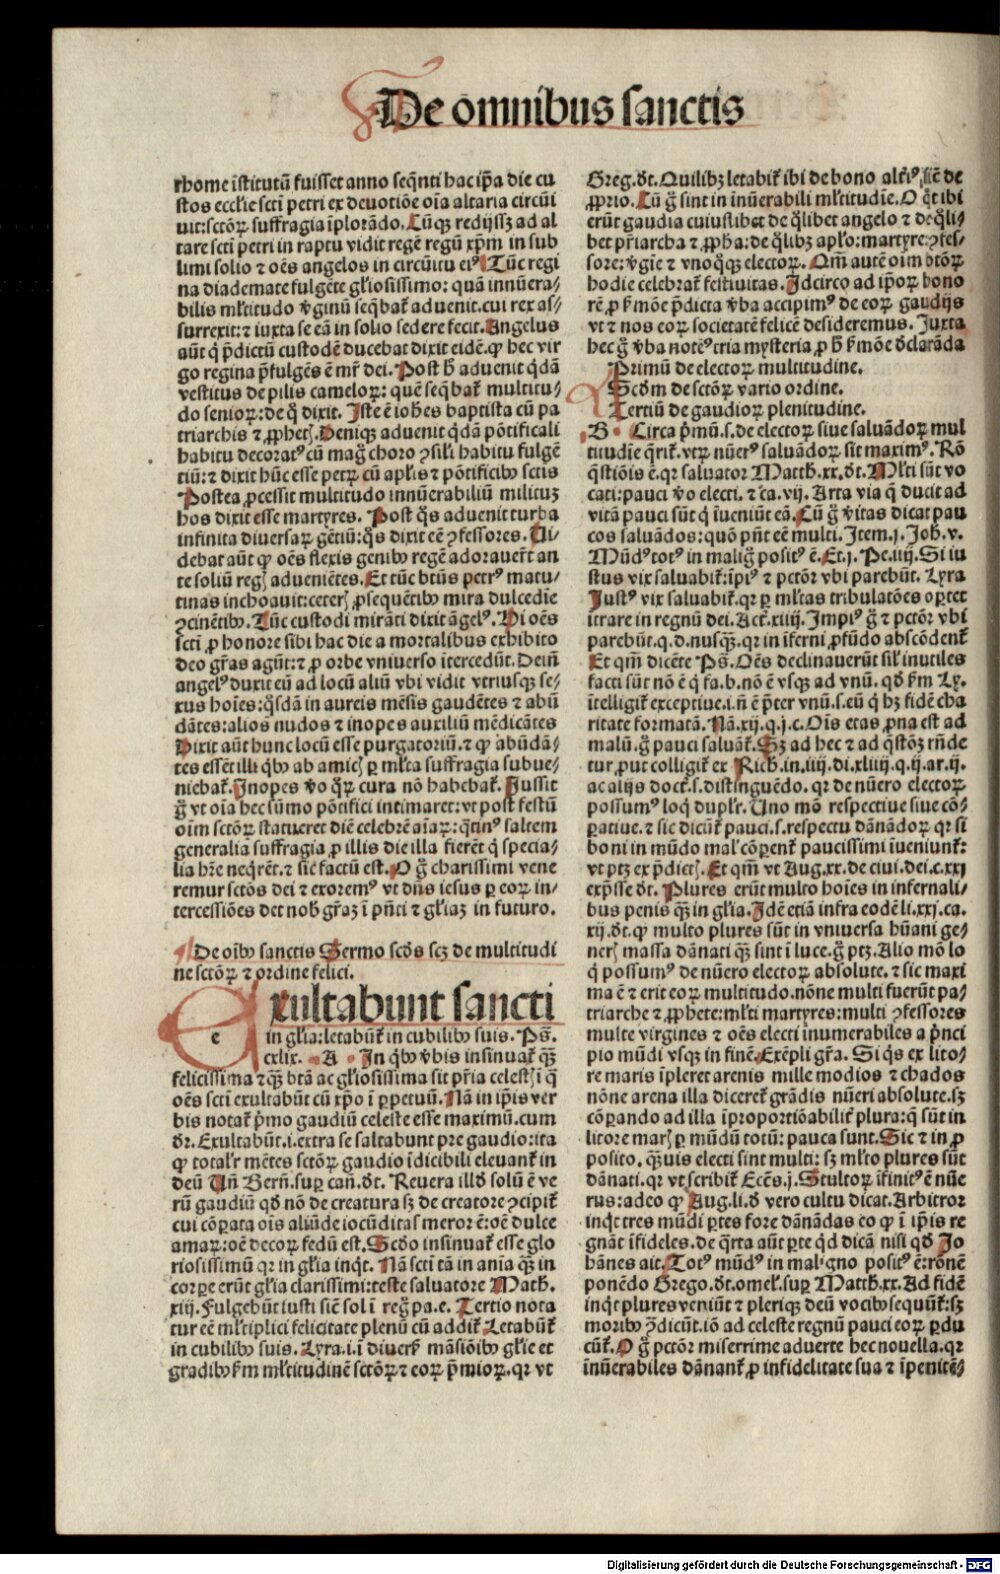 De om̄nibus sanctis
rhome īstitutū fuisset anno seq̄nti hac ip̄a die cu
stos eccl'ie scti petri ex deuotiōe oīa altaria circūi
uit: sctōꝝ suffragia īplorādo. Cūqꝫ redijssꝫ ad al
tare scti petri in raptu vidit regē regū xp̄m in sub
limi solio ⁊ oēs angelos in circūitu eiꝰ Tūc regi
na diademate fulgēte gl'iosissimo: quā innūera⸗
bilis ml'titudo v̄ginū seq̄bat̄ aduenit. cui rex as⸗
surrexit: ⁊ iuxta se eā in solio sedere fecit. Angelus
aūt q̇ p̄dictū custodē ducebat dixit eidē. ꝙ hec vir
go regina p̄fulgēs ē mr̄ dei. Post h̄ aduenit q̇dā
vestitus de pilis cameloꝝ: quē seq̄bat̄ multitu⸗
do senioꝝ: de q̊ dixit. Iste ē ioh̄es baptista cū pa
triarchis ⁊ ꝓphetꝭ. Deniqꝫ aduenit q̇dā pōtificali
habitu decoratꝰ cū mag̊ choro ꝯsil'i habitu fulgē
tiū: ⁊ dixit hūc esse petꝝ cū apl'is ⁊ pōtificibꝰ sctis
Postea ꝓcessit multitudo innūerabiliū militūꝫ
hos dixit esse martyres. Post q̊s aduenit turba
infinita diuersaꝝ gētiū: q̊s dixit eē ꝯfessores. Ui⸗
debat aūt ꝙ oēs flexis genibꝰ regē adorauer̄t an
te soliū regꝭ adueniētes. Et tūc btūs petrꝰ matu⸗
tinas inchoauit: ceterꝭ ꝓsequētibꝰ mira dulcedie
ꝯcinētibꝰ. Tūc custodi mirāti dixit āgelꝰ. Di oēs
scti ꝓ honore sibi hac die a mortalibus exhibito
deo gr̄as agūt: ⁊ ꝓ orbe vniuerso ītercedūt. Dein̄
angelꝰ duxit eū ad locū aliū vbi vidit vtriusqꝫ se⸗
xus hoīes: q̊sdā in aureis mēsis gaudētes ⁊ abū
dātes: alios nudos ⁊ inopes auxiliū mēdicātes
Dixit aūt hunc locū esse purgatoriū. ⁊ ꝙ abūdā⸗
tes essēt illi q̇bꝰ ab amicꝭ ꝑ ml'ta suffragia subue⸗
niebat̄. Inopes v̊o q̊ꝝ cura nō habebat̄. Iussit
g̊ vt oīa hec sūmo pōtifici intimaret: vt post festū
oīm sctōꝝ statueret diē celebrē aīaꝝ: q̊tinꝰ saltem
generalia suffragia ꝓ illis die illa fierēt q̇ specia⸗
lia hr̄e neq̄rēt. ⁊ sic factū est. O g̊ charissimi vene
remur sctōs dei ⁊ exoremꝰ vt dn̄s iesus ꝑ eoꝝ in⸗
tercessiōes det nob̄ gr̄aꝫ ī pn̄ti ⁊ gl'iaꝫ in futuro.
De oībꝰ sanctis Sermo scd̄s scꝫ de multitudi
ne sctōꝝ ⁊ ordine felici.
e
Exultabunt sancti
in gl'ia: letabūt̄ in cubilibꝰ suis. Ps̄.
cxlix. A In q̇bꝰ v̄bis insinuat̄ q̄ꝫ
felicissima ⁊ q̄ꝫ btā ac gl'iosissima sit pr̄ia celestꝭ ī q̄
oēs scti exultabūt cū xp̄o ī ꝑpetuū. Nā in ip̄is ver
bis notat̄ p̄mo gaudiū celeste esse maximū. cum
dr̄. Exultabūt. i. extra se saltabunt pre gaudio: ita
ꝙ total'r mētes sctōꝝ gaudio īdicibili eleuant̄ in
deū Un̄ Bern̄. suꝑ can̄. dt̄. Reuera illd̄ solū ē ve
rū gaudiū qd̄ nō de creatura sꝫ de creatore ꝯcipit̄
cui cōꝑata oīs aliūde iocūditas meror ē: oē dulce
amaꝝ: oē decoꝝ fedū est. Scd̄o insinuat̄ esse glo
riosissimū qr̄ in gl'ia inq̇t. Nā scti tā in aīa q̄ꝫ in
corꝑe erūt gl'ia clarissimi: teste saluatore Math.
xiij. Fulgebūt iusti sic̄ sol ī reg̊ pa. e. Tertio nota
tur eē ml'tiplici felicitate plenū cū addit̄ Letabūt̄
in cubilibꝰ suis. Lyra. i. ī diuers̄ māsiōibꝰ gl'ie et
gradibꝰ ẜm ml'titudinē sctōꝝ ⁊ eoꝝ p̄mioꝝ. qr̄ vt
Greg. dt̄. Quilibꝫ letabit̄ ibi de bono alt̄iꝰ sic̄ de
ꝓprio. Cū g̊ sint in īnūerabili ml'titudīe. O q̇t ibi
erūt gaudia cuiuslibet de q̊libet angelo ⁊ de q̊li⸗
bet pr̄iarcha ⁊ ꝓpha: de q̊libꝫ apl'o: martyre: ꝯfes⸗
sore: v̄gīe ⁊ vnoq̊qꝫ electoꝝ. Qm̄ autē oīm btōꝝ
hodie celebrat̄ festiuitas. Idcirco ad ip̄oꝝ hono
rē ꝓ ẜmōe p̄dicta v̄ba accipimꝰ de eoꝝ gaudijs
vt ⁊ nos eoꝝ societatē felicē desideremus. Iuxta
hec g̊ v̄ba notēꝰ tria mysteria ꝓ h̄ ẜmōe d̄clarāda
Primū de electoꝝ multitudine.
Scd̄m de sctōꝝ vario ordine.
Tertiū de gaudioꝝ plenitudine.
B Circa p̄mū. s. de electoꝝ siue saluādoꝝ mul
titudīe q̄rit̄. vtꝝ nūerꝰ saluādoꝝ sit maximꝰ. Rō
q̄stiōis ē. qꝛ saluator Matth. xx. dt̄. Ml'ti sūt vo
cati: pauci v̊o electi. ⁊ ca. vij. Arta via q̄ ducit ad
vitā pauci sūt q̇ īueniūt eā. Cū g̊ v̄itas dicat pau
cos saluādos: quō pn̄t eē multi. Item. j. Joh. v.
Mūdꝰ totꝰ in malig̊ positꝰ ē. Et. j. Pe. iiij. Si iu
stus vix saluabit̄: īpiꝰ ⁊ pctōr vbi parebūt. Lyra
Iustꝰ vix saluabit̄. qr̄ ꝑ ml'tas tribulatōes oportet
ītrare in regnū dei. Act̄. xiiij. Impiꝰ g̊ ⁊ pctōr vbi
parebūt. q. d. nusq̄ꝫ. qr̄ in īferni ꝓfūdo abscōdent̄
Et qm̄ dicēte Ps̄. Oēs declinauerūt sil' inutiles
facti sūt nō ē q̇ fa. b. nō ē vsqꝫ ad vnū. qd̄ ẜm Ly.
ītelligit̄ exceptiue. i. n̄ ē p̄ter vnū. s. eū q̇ hꝫ fidē cha
ritate formatā. Nā. xij. q. j. c. Oīs etas ꝓna est ad
malū. g̊ pauci saluāt̄. Sꝫ ad hec ⁊ ad q̄stōꝫ rn̄de
tur ꝓut colligit̄ ex Rich. in. iiij. di. xliij. q. ij. ar. ij.
ac alijs doct̄. s. distinguēdo. qr̄ de nūero electoꝝ
possumꝰ loq̇ dupl'r. Uno mō respectiue siue cō⸗
ꝑatiue. ⁊ sic dicūt̄ pauci. s. respectu dānādoꝝ qr̄ si
boni in mūdo mal' cōꝑent̄ paucissimi īueniunt̄:
vt ptꝫ ex p̄dictꝭ. Et qm̄ vt Aug. xx. de ciui. dei. c. xxj
exp̄sse dt̄. Plures erūt multo hoīes in infernali⸗
bus penis q̄ꝫ in gl'ia. Idē etiā infra eodē li. xxj. ca.
xij. dt̄. ꝙ multo plures sūt in vniuersa hūani ge⸗
nerꝭ massa dānati q̄ꝫ sint ī luce. g̊ ptꝫ. Alio mō lo
q̇ possumꝰ de nūero electoꝝ absolute. ⁊ sic maxi
ma ē ⁊ erit eoꝝ multitudo. nōne multi fuerūt pa⸗
triarche ⁊ ꝓphete: ml'ti martyres: multi ꝯfessores
multe virgines ⁊ oēs electi īnumerabiles a p̄nci
pio mūdi vsqꝫ in finē. Exēpli gr̄a. Si q̇s ex lito⸗
re maris īpleret arenis mille modios ⁊ chados
nōne arena illa diceret̄ grādis nūeri absolute. sꝫ
cōꝑando ad illa īproportiōabilit̄ plura: q̄ sūt in
litore marꝭ ꝑ mūdū totū: pauca sunt. Sic ⁊ in ꝓ
posito. q̄ꝫuis electi sint multi: sꝫ ml'to plures sūt
dānati. qr̄ vt scribit̄ Ecc̄s. j. Stultoꝝ īfinitꝰ ē nūe
rus: adeo ꝙ Aug. li. d̄ vero cultu dicat. Arbitror
inq̇t tres mūdi ꝑtes fore dānādas eo ꝙ ī ip̄is re
gnāt īfideles. de q̊rta aūt ꝑte q̇d dicā nisi qd̄ Jo
hānes ait. Totꝰ mūdꝰ in maligno positꝰ ē: rōnē
ponēdo Grego. dt̄. omel'. suꝑ Matth. xx. Ad fidē
inq̇t plures veniūt ⁊ pleriqꝫ deū vocibꝰ sequūt̄: sꝫ
moribꝰ ꝯdicūt. iō ad celeste regnū pauci eoꝝ ꝑdu
cūt̄. O g̊ pctōr miserrime aduerte hec nouella. qr̄
īnūerabiles dānant̄ ꝓ infidelitate sua ⁊ īpenitē⸗
Digitalisierung gefördert durch die Deutsche Forschungsgemeinschaft - DFG